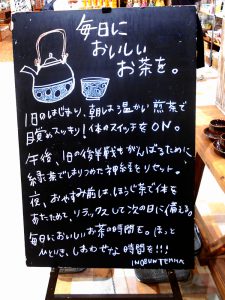 毎日に
おいしい
お茶を。
1日のはじまり、朝は温かい煎茶で
目覚めスッキリ!体のスイッチをON。
午後、1日の後半戦をがんばるために
緑茶でしまりつめた神経をリセット。
夜、おやすみ前は、ほうじ茶で体を
あたためて、リラックスして次の日に備える。
毎日においしいお茶の時間を。ほっと
ひととき、しあわせな時間を!!
INOBUN TERRA